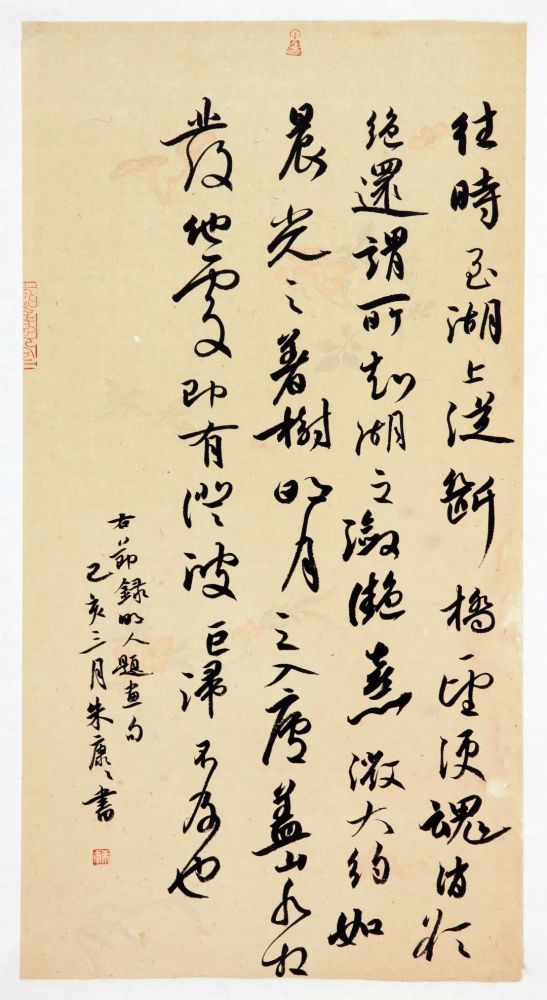 往時至湖上從斷橋一望便魂消欲
絕還謂所知湖之瀲灩熹微大約如
晨光之著樹明月之入廬蓋山水相
發他處即有澄波巨浸不及也
右節錄明人題畫句
己亥三月朱康〻書